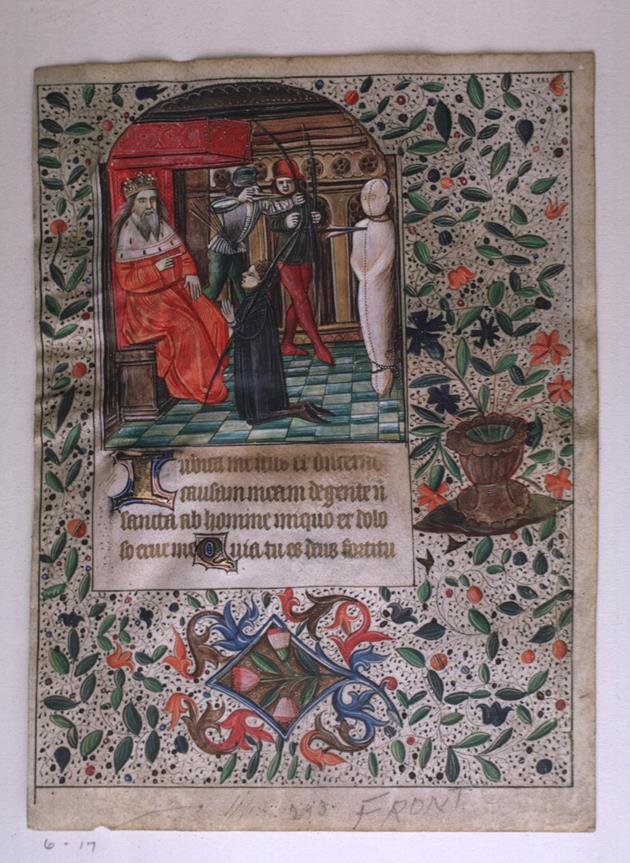 Iudica me deus et discerne
causam meam de gente n
sancta ab homine iniquo et dolo
so erue me Quia tu es deus fortitu
293
FRONT
6 - 17